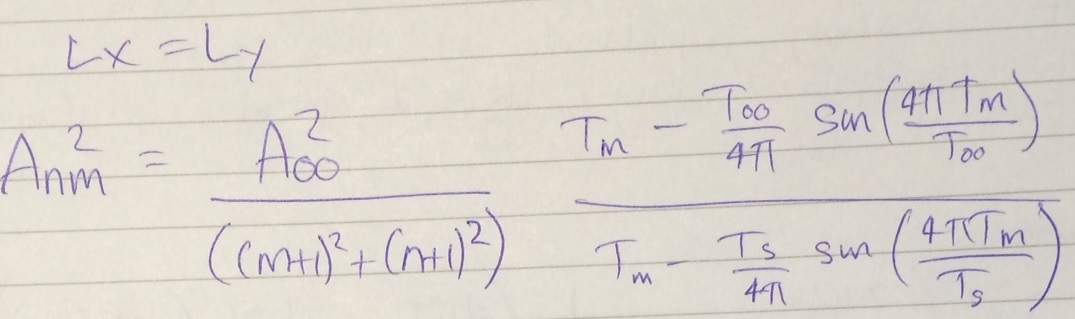 Lx = Ly
Anm² = A₀₀² / ((m+1)² + (n+1)²) (Tm - T₀₀/4π sin(4πTm/T₀₀)) / (Tm - Ts/4π sin(4πTm/Ts))